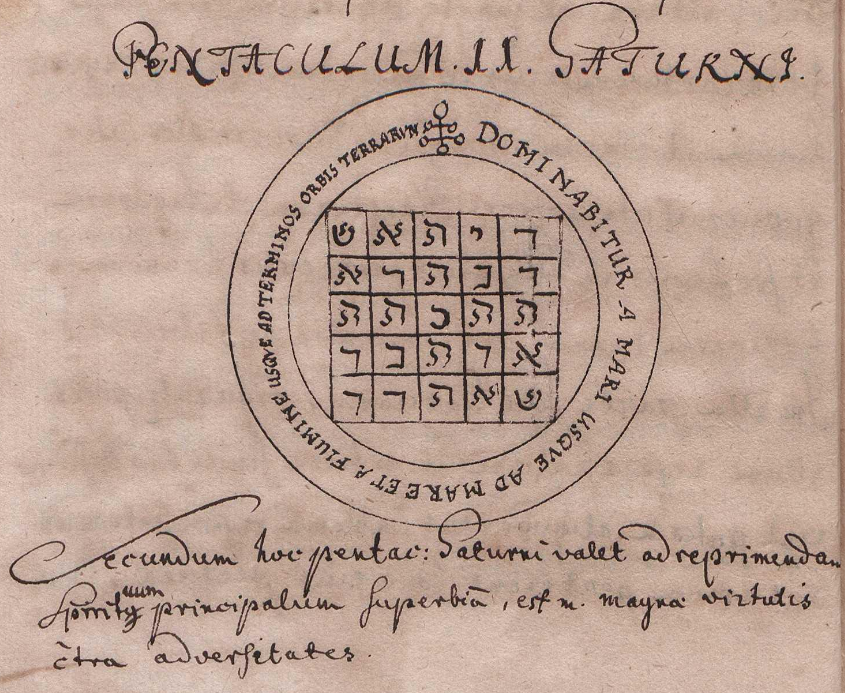 PENTACULUM. II. SATURNI.
DOMINABITUR A MARI USQVE AD MARE ET A FLUMINE USQVE AD TERMINOS ORBIS TERRARVM
ד י ה א ש
ד ב ה ר א
ה ה כ ה ה
א ר ה ב ר
ש א ה ר ר
Secundum hoc pentac: Saturni valet ad reprimendam
Spirituum principalium superbiã, est n. magnæ virtutis
c̃tra adversitates.